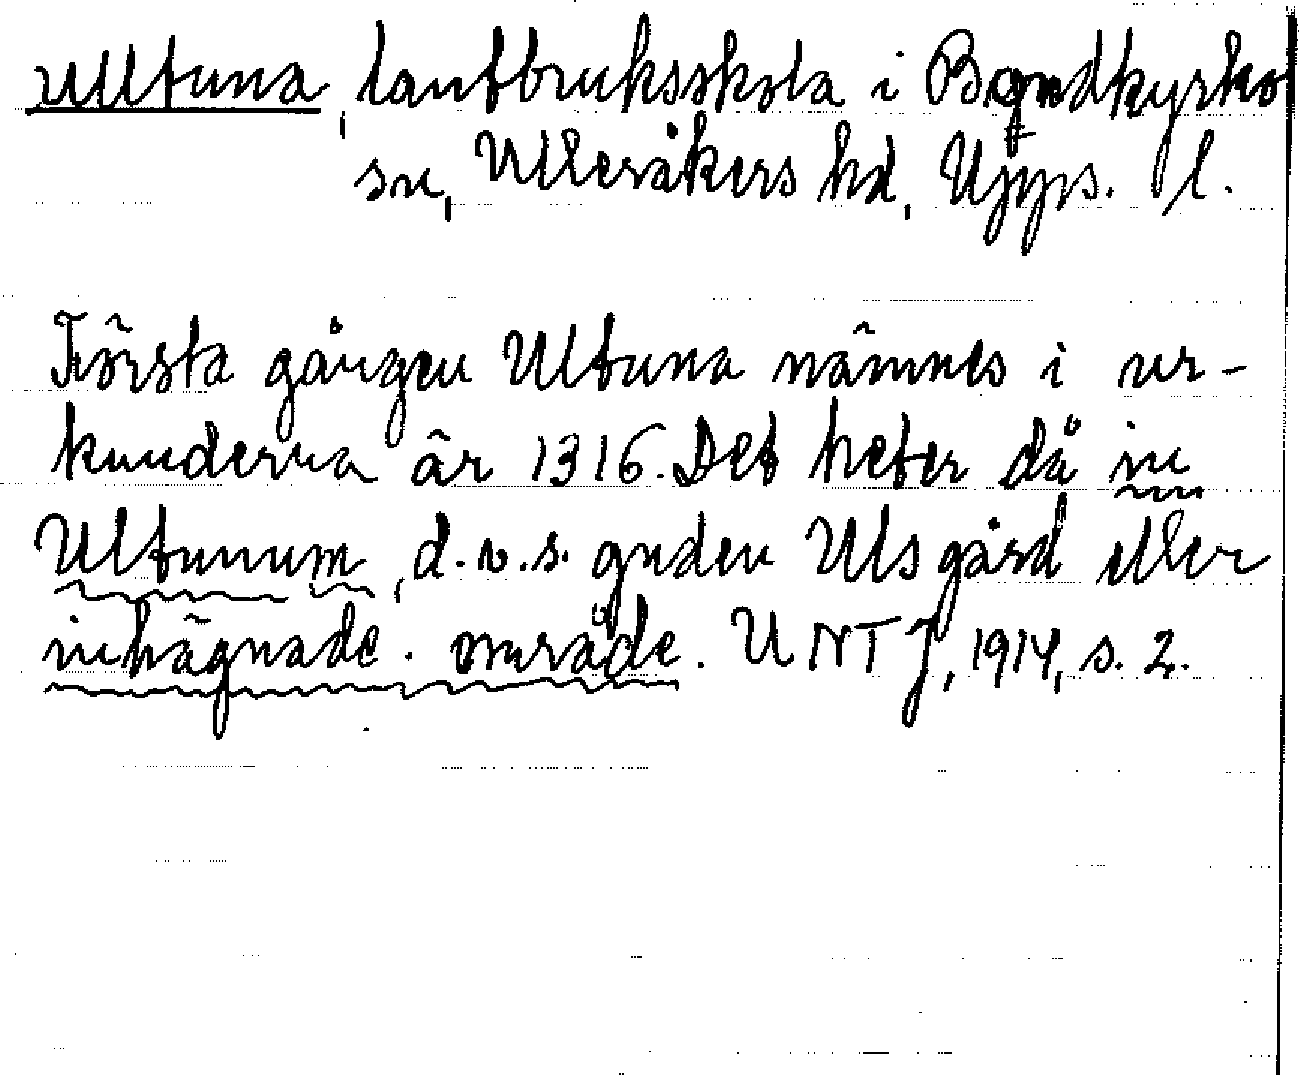 Ulltuna, lantbruksskola i Bondkyrko
sn, Ulleråkers hd, Upps. l.
Första gången Ultuna nämnes i ur-
kunderna år 1316. Det heter då in
Ultunum, d.v.s. guden Uls gård eller
inhägnade område. UNTJ, 1914, s. 2.